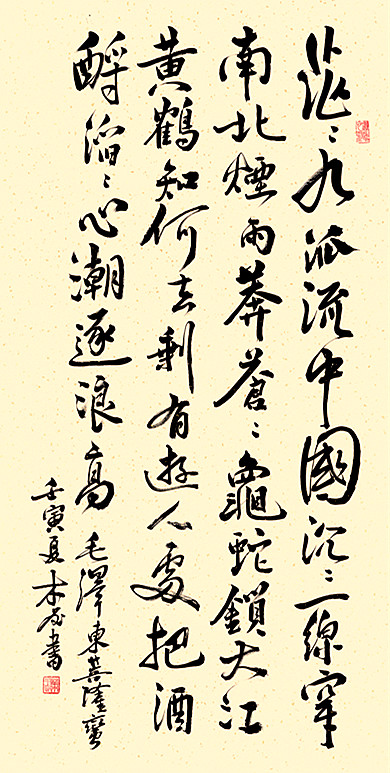 茫〻九派流中國沉〻一線穿
南北煙雨莽蒼〻龜蛇鎖大江
黄鶴知何去剩有遊人處把酒
酹滔〻心潮逐浪高
毛澤東菩薩蠻
壬寅夏木石書